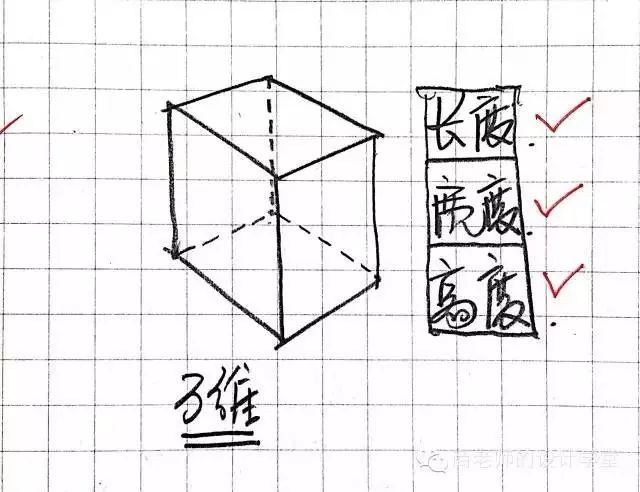 长度.
宽度.
高度.
3维
高老师的设计学堂